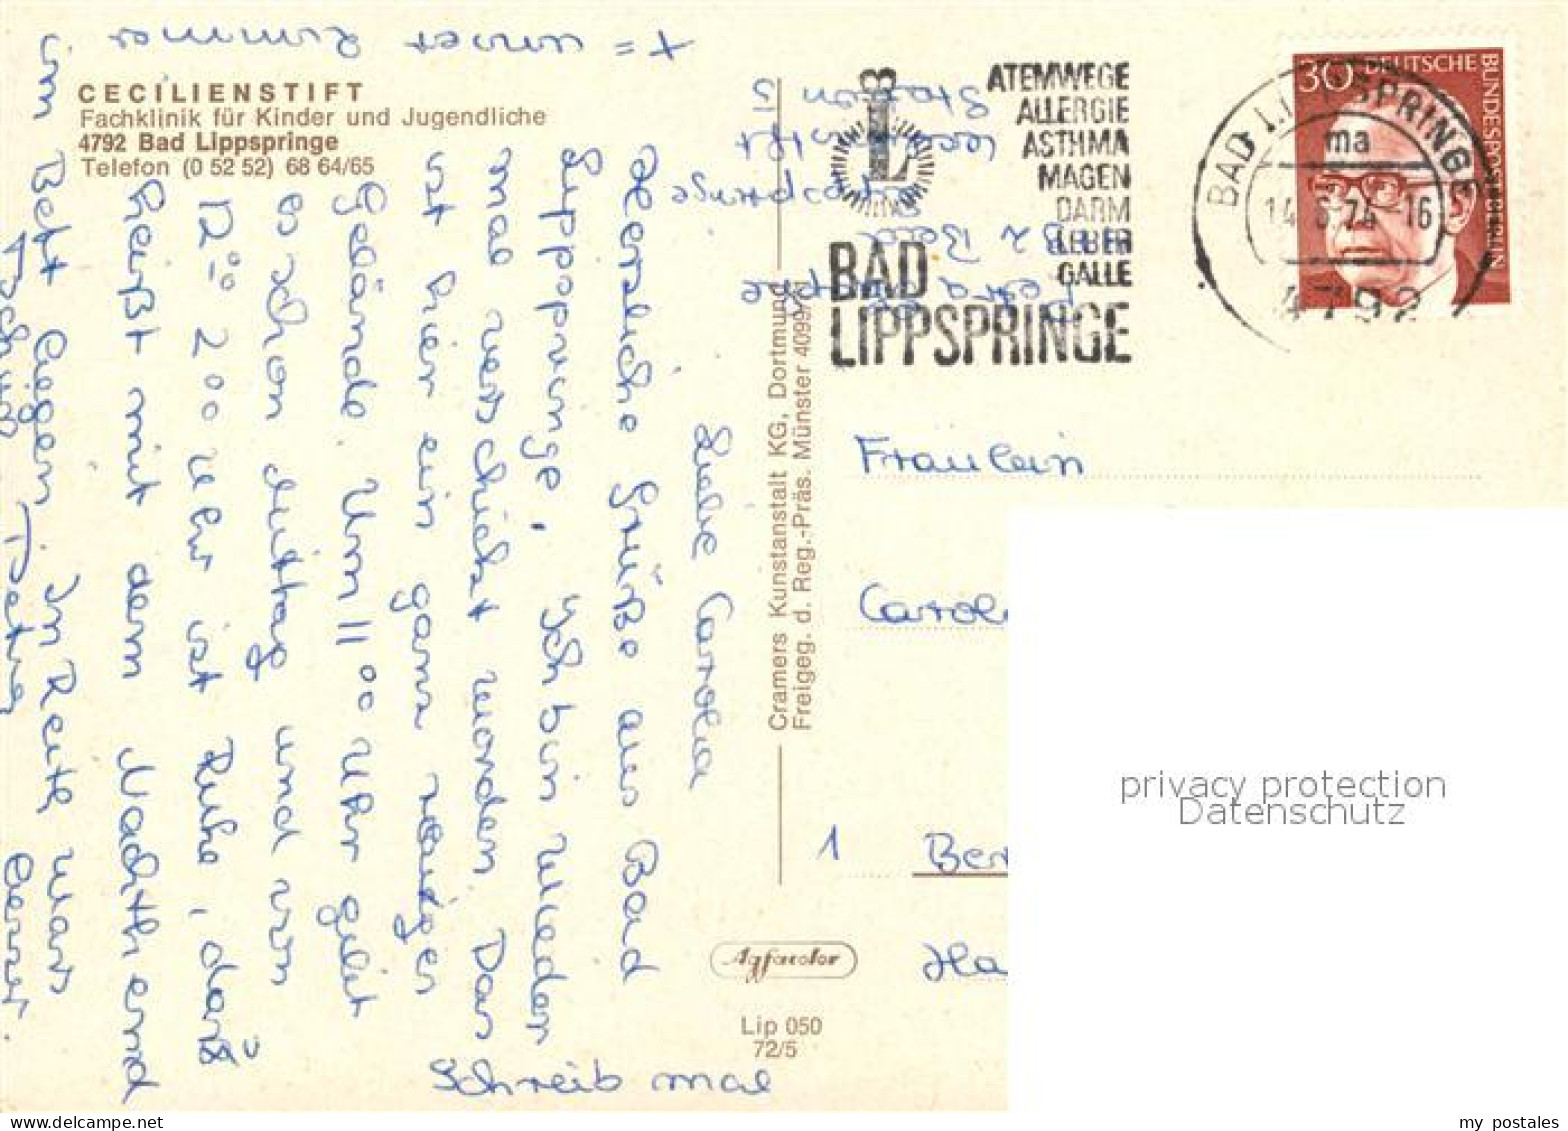 CECILIENSTIFT
Fachklinik für Kinder und Jugendliche
4792 Bad Lippspringe
Telefon (0 52 52) 68 64/65
x = unser Zimmer
Liebe Carola
Herzliche Grüße aus Bad
Lippspringe. Ich bin wieder
mal verschickt worden. Das
ist hier ein ganz
Gelände. Um 11 00 Uhr gibt
es schon Mittag und von
12 00 - 2 00 Uhr ist Ruhe, das
heißt mit dem
im Bett liegen. In Reith war
Tschüß Petra
Schreib mal
Cramers Kunstanstalt KG, Dortmund
Freigeg. d. Reg.-Präs. Münster 4099/
Agfacolor
Lip 050
72/5
Petra
Bad
Lippspringe
Cecilienstift
Station 5
ATEMWEGE
ALLERGIE
ASTHMA
MAGEN
DARM
LEBER
GALLE
BAD
LIPPSPRINGE
BAD LIPPSPRINGE
ma
14.6.74-16
4792
30 DEUTSCHE
BUNDESPOST BERLIN
Fräulein
Carol
1 Ber
Ha
privacy protection
Datenschutz
my postales